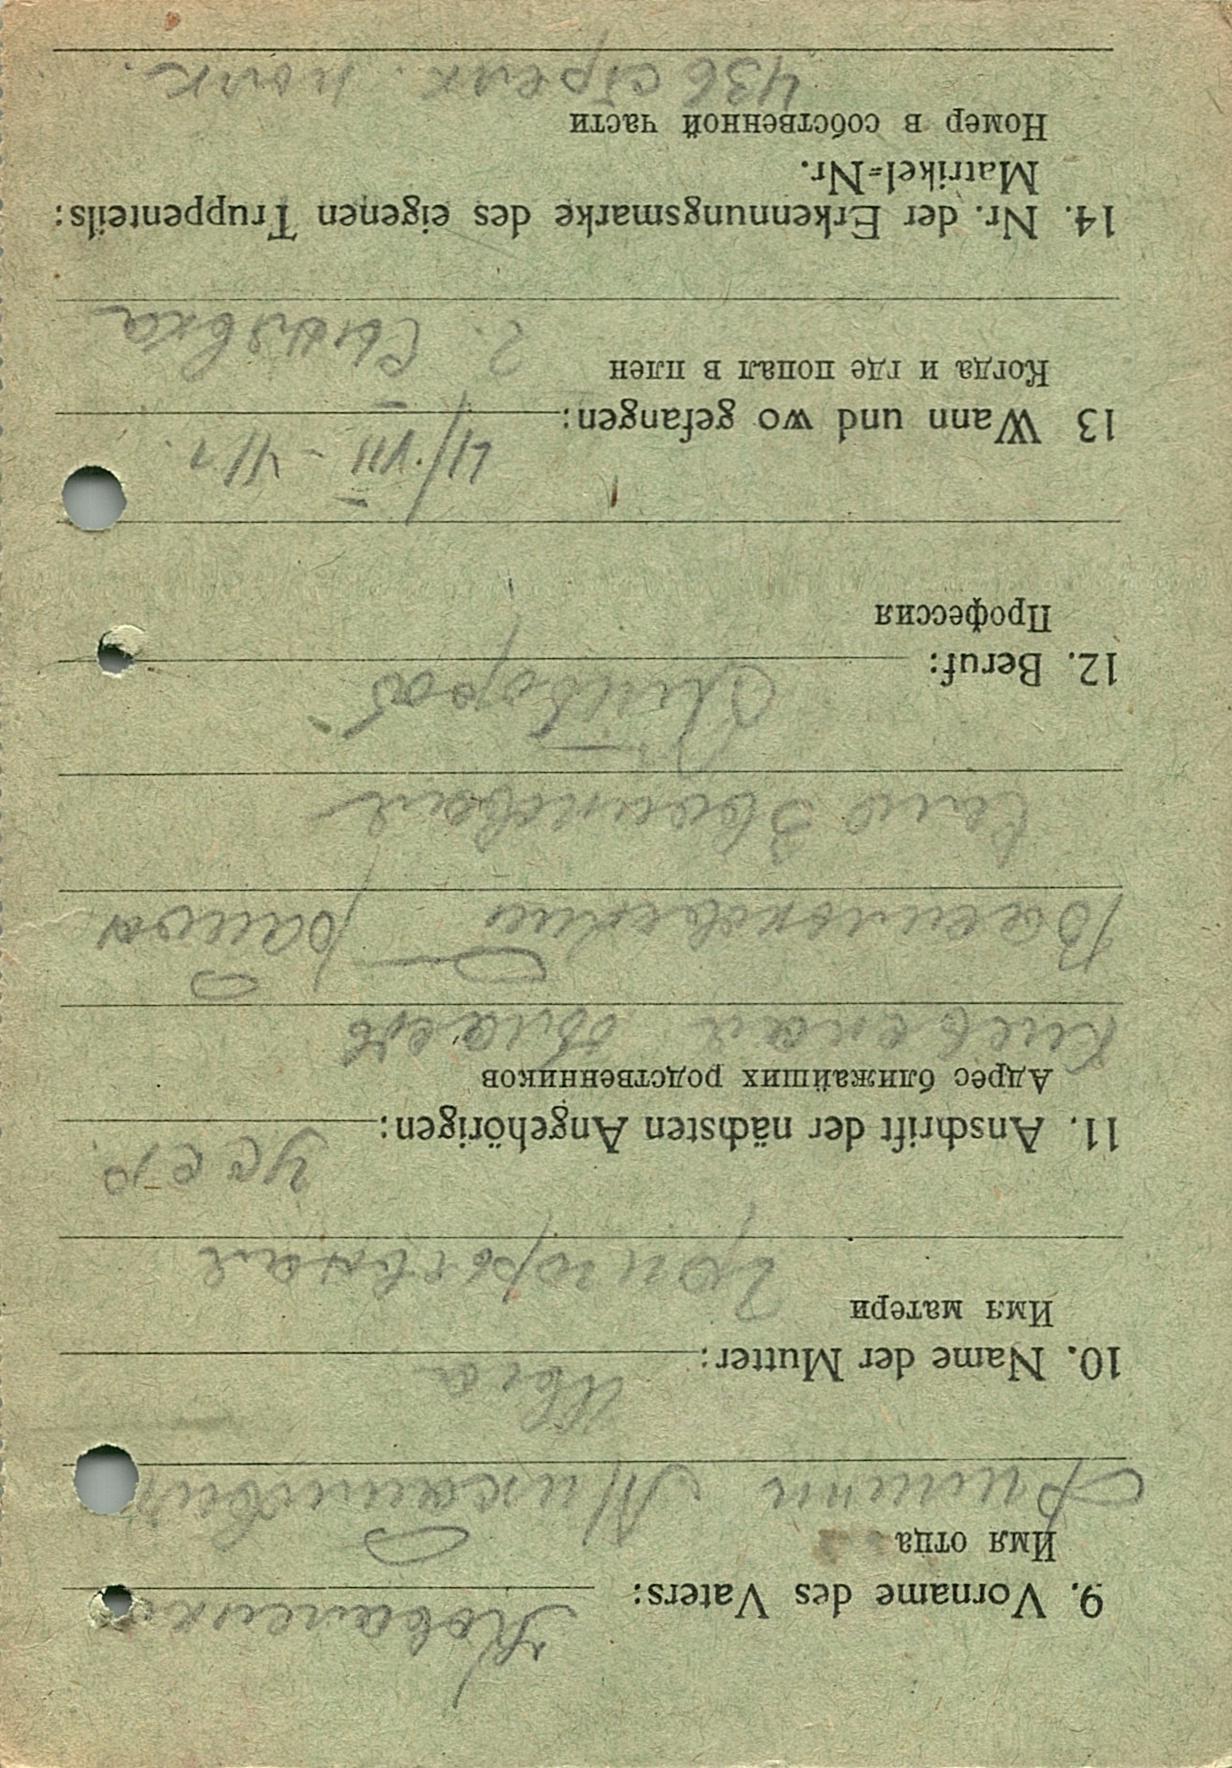 9. Vorname des Vaters: Коваленко
Имя отца
Филипп Михайлович
10. Name der Mutter:
Имя матери
Григорьевная
11. Anschrift der nächsten Angehörigen: УССР.
Адрес ближайших родственников
Киевская область
Васильковский район
село
12. Beruf:
Профессия
13 Wann und wo gefangen: 4/VIII - 41 г.
Когда и где попал в плен
г.
14. Nr. der Erkennungsmarke des eigenen Truppenteils:
Matrikel=Nr.
Номер в собственной части
436 стрелк. полк.